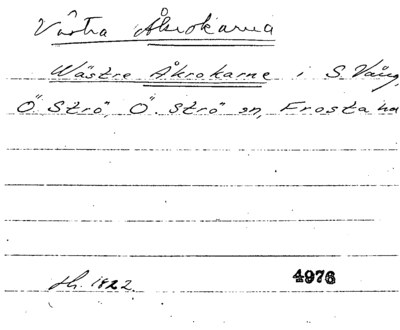 Västra Åkrokarna
Wästre Åkrokarne i S. Vång,
Ö. Strö, Ö. Strö sn, Frosta hd
sk. 1822.
4976